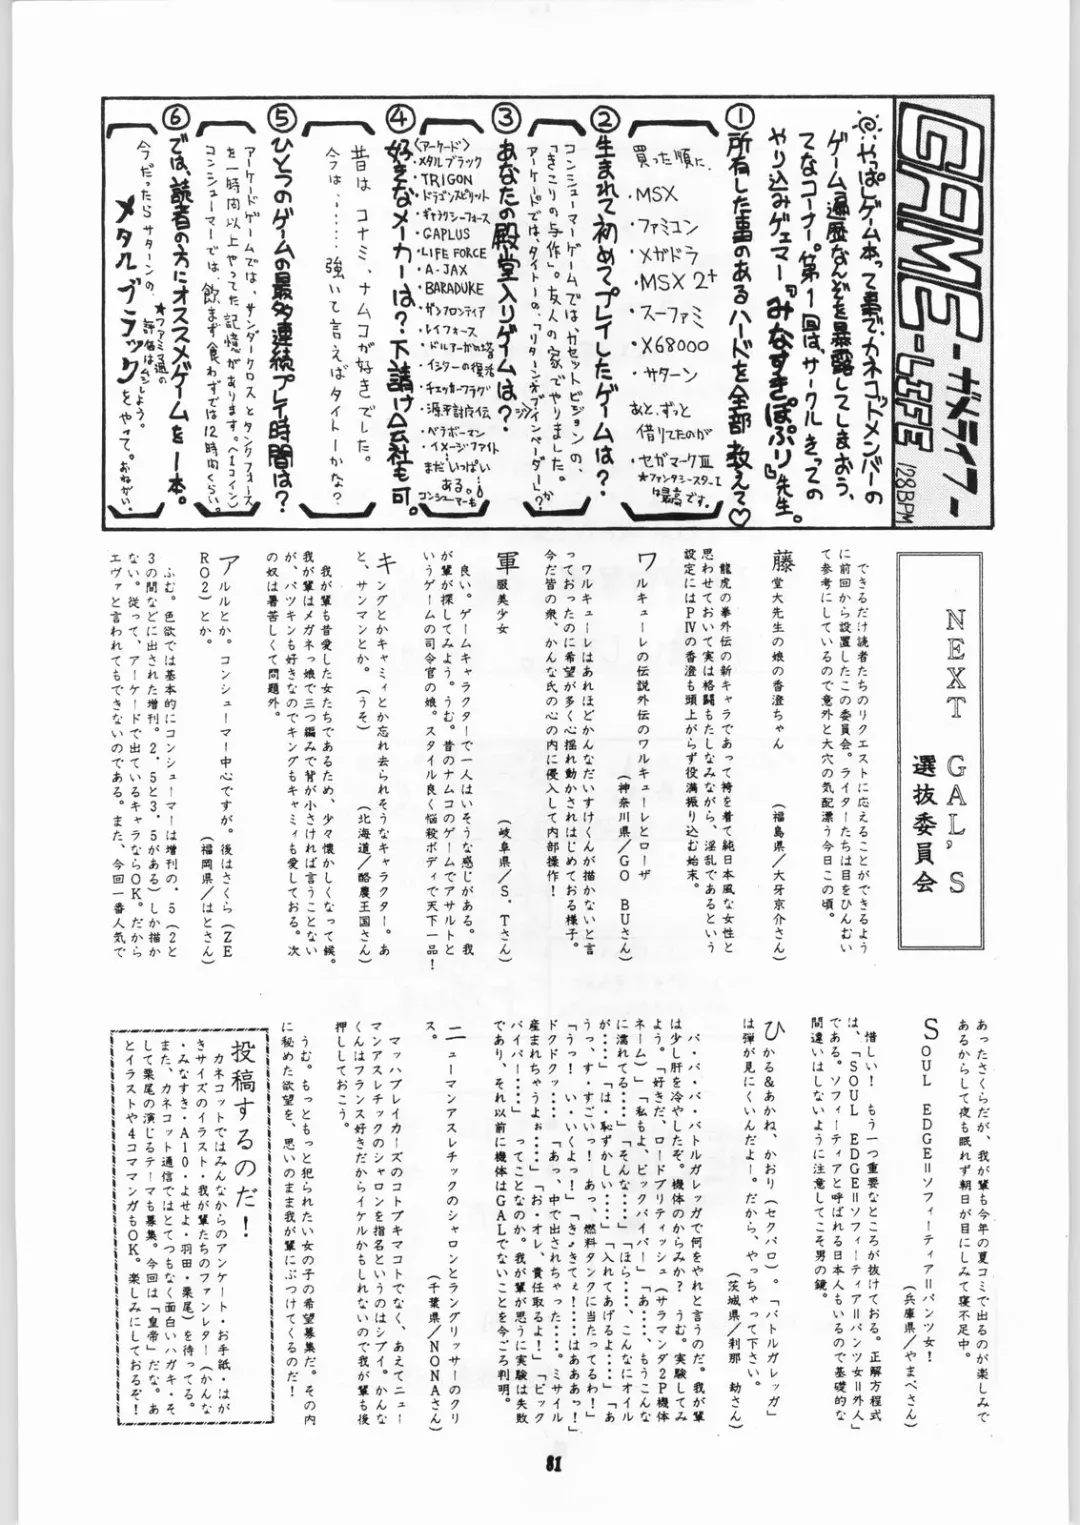 GAME-LIFE
－ガメライフ－
128BPM
やっぱしゲーム本って事で、カネコットメンバーの
ゲーム遍歴なんぞを暴露してしまおう、
てなコーナー。第1回は、サークルきっての
やり込みゲェマー『みなすきぽぷり』先生。
①所有した事のあるハードを全部教えて♡
買った順に、
・MSX
・ファミコン
・メガドラ
・MSX2+
・スーファミ
・X68000
・サターン
あと、ずっと
借りてたのが
セガマークⅢ
★ファンタシースターⅠ
は最高です。
②生まれて初めてプレイしたゲームは？
コンシューマーゲームでは、カセットビジョンの、
「きこりの与作」。友人の家でやりました。
アーケードでは、タイトーの、「リターンオブインベーダー」？か
③あなたの殿堂入りゲームは？
〈アーケード〉
・メタルブラック
・TRIGON
・ドラゴンスピリット
・ギャラクシーフォース
・GAPLUS
・LIFE FORCE
・A-JAX
・BARADUKE
・ガンフロンティア
・レイフォース
・ドルアーガの塔
・イシターの復活
・チェッカーフラグ
・源平討魔伝
・ベラボーマン
・イメージファイト
まだいっぱい
ある。
コンシューマーも
④好きなメーカーは？下請け会社も可。
昔は コナミ、ナムコが好きでした。
今は、……強いて言えばタイトーかな？
⑤ひとつのゲームの最多連続プレイ時間は？
アーケードゲームでは、サンダークロスとタンクフォース
を一時間以上やってた記憶があります。(1コイン)
コンシューマーでは、飲まず食わずでは12時間くらい。
⑥では、読者の方にオススメゲームを一本。
今だったらサターンの、
★ファミマ通の
評価はムシしよう。
メタルブラックをやって。おねがい。
NEXT GAL'S
選抜委員会
できるだけ読者たちのリクエストに応えることができるよう
に前回から設置したこの委員会。ライターたちは目をひんむい
て参考にしているので意外と大穴の気配漂う今日この頃。
藤堂大先生の娘の香澄ちゃん
(福島県／大牙京介さん)
龍虎の拳外伝の新キャラであって袴を着て純日本風な女性と
思わせておいて実は格闘もたしなみながら、淫乱であるという
設定にはPⅣの香澄も頭上がらず役満振り込む始末。
ワルキューレの伝説外伝のワルキューレとローザ
(神奈川県／GO BUさん)
ワルキューレはあれほどかんなだいすけくんが描かないと言
っておったのに希望が多く心揺れ動かされはじめておる様子。
今だ皆の衆、かんな氏の心の内に侵入して内部操作！
軍服美少女
(岐阜県／S、Tさん)
良い。ゲームキャラクターで一人はいそうな感じがある。我
が輩が探してみよう。うむ。昔のナムコのゲームでアサルトと
いうゲームの司令官の娘。スタイル良く悩殺ボディで天下一品！
キングとかキャミィとか忘れ去られそうなキャラクター。あ
と、サンマンとか。(うそ)
(北海道／酪農王国さん)
我が輩も昔愛した女たちであるため、少々懐かしくなって候。
我が輩はメガネっ娘で三つ編みで背が小さければ言うことない
が、パツキンも好きなのでキングもキャミィも愛しておる。次
の奴は暑苦しくて問題外。
アルルとか。コンシューマー中心ですが。後はさくら(ZE
RO2)とか。
(福岡県／はとさん)
ふむ。色欲では基本的にコンシューマーは増刊の．5(2と
3の間などに出された増刊。2．5と3．5がある)しか描か
ない。従って、アーケードで出ているキャラならOK。だから
エヴァと言われてもできないのである。また、今回一番人気で
あったさくらだが、我が輩も今年の夏コミで出るのが楽しみで
あるからして夜も眠れず朝日が目にしみて寝不足中。
SOUL EDGE＝ソフィーティア＝パンツ女！
(兵庫県／やまべさん)
惜しい！ もう一つ重要なところが抜けておる。正解方程式
は、「SOUL EDGE＝ソフィーティア＝パンツ女＝外人」
である。ソフィーティアと呼ばれる日本人もいるので基礎的な
間違いはしないように注意してこそ男の鏡。
ひかる&あかね、かおり(セクパロ)。「バトルガレッガ」
は弾が見にくいんだよー。だから、やっちゃって下さい。
(茨城県／刹那 劫さん)
バ・バ・バ・バトルガレッガで何をやれと言うのだ。我が輩
は少し肝を冷やしたぞ。機体のからみか？ うむ。実験してみ
よう。「好きだ、ロードブリティッシュ(サラマンダ2P機体
ネーム)」「私もよ、ビックバイパー」「あ‥‥、もうこんな
に濡れてる‥‥」「そんな‥‥」「ほら‥‥、こんなにオイル
が‥‥」「は・恥ずかしい‥‥」「入れてあげるよ‥‥」「あ
うっ、す・すごいっ！ あっ、燃料タンクに当たってるわ！」
「うっ！ い・いくよっ！」「き・きてぇ！‥‥はああっ！」
ドクドクッ‥‥」「あっ、中で出されちゃった‥‥。ミサイル
産まれちゃうよぉ‥‥」「お・オレ、責任取るよ！」「ビック
バイパー‥‥」 ってことなのか。我が輩が思うに実験は失敗
であり、それ以前に機体はGALでないことを今ごろ判明。
ニューマンアスレチックのシャロンとラングリッサーのクリ
ス。
(千葉県／NONAさん)
マッハブレイカーズのコトブキマコトでなく、あえてニュー
マンアスレチックのシャロンを指名というのはシブイ。かんな
くんはフランス好きだからイケルかもしれないので我が輩も後
押ししておこう。
うむ。もっともっと犯られたい女の子の希望募集だ。その内
に秘めた欲望を、思いのまま我が輩にぶつけてくるのだ！
投稿するのだ！
カネコットではみんなからのアンケート・お手紙・はが
きサイズのイラスト・我が輩たちのファンレター(かんな
・みなすき・A10・よせよ・羽田・栗尾)を待ってる。
また、カネコット通信ではとてつもなく面白いハガキ・そ
して栗尾の演じるテーマも募集。今回は「皇帝」だな。あ
とイラストや4コママンガもOK。楽しみにしておるぞ！
81